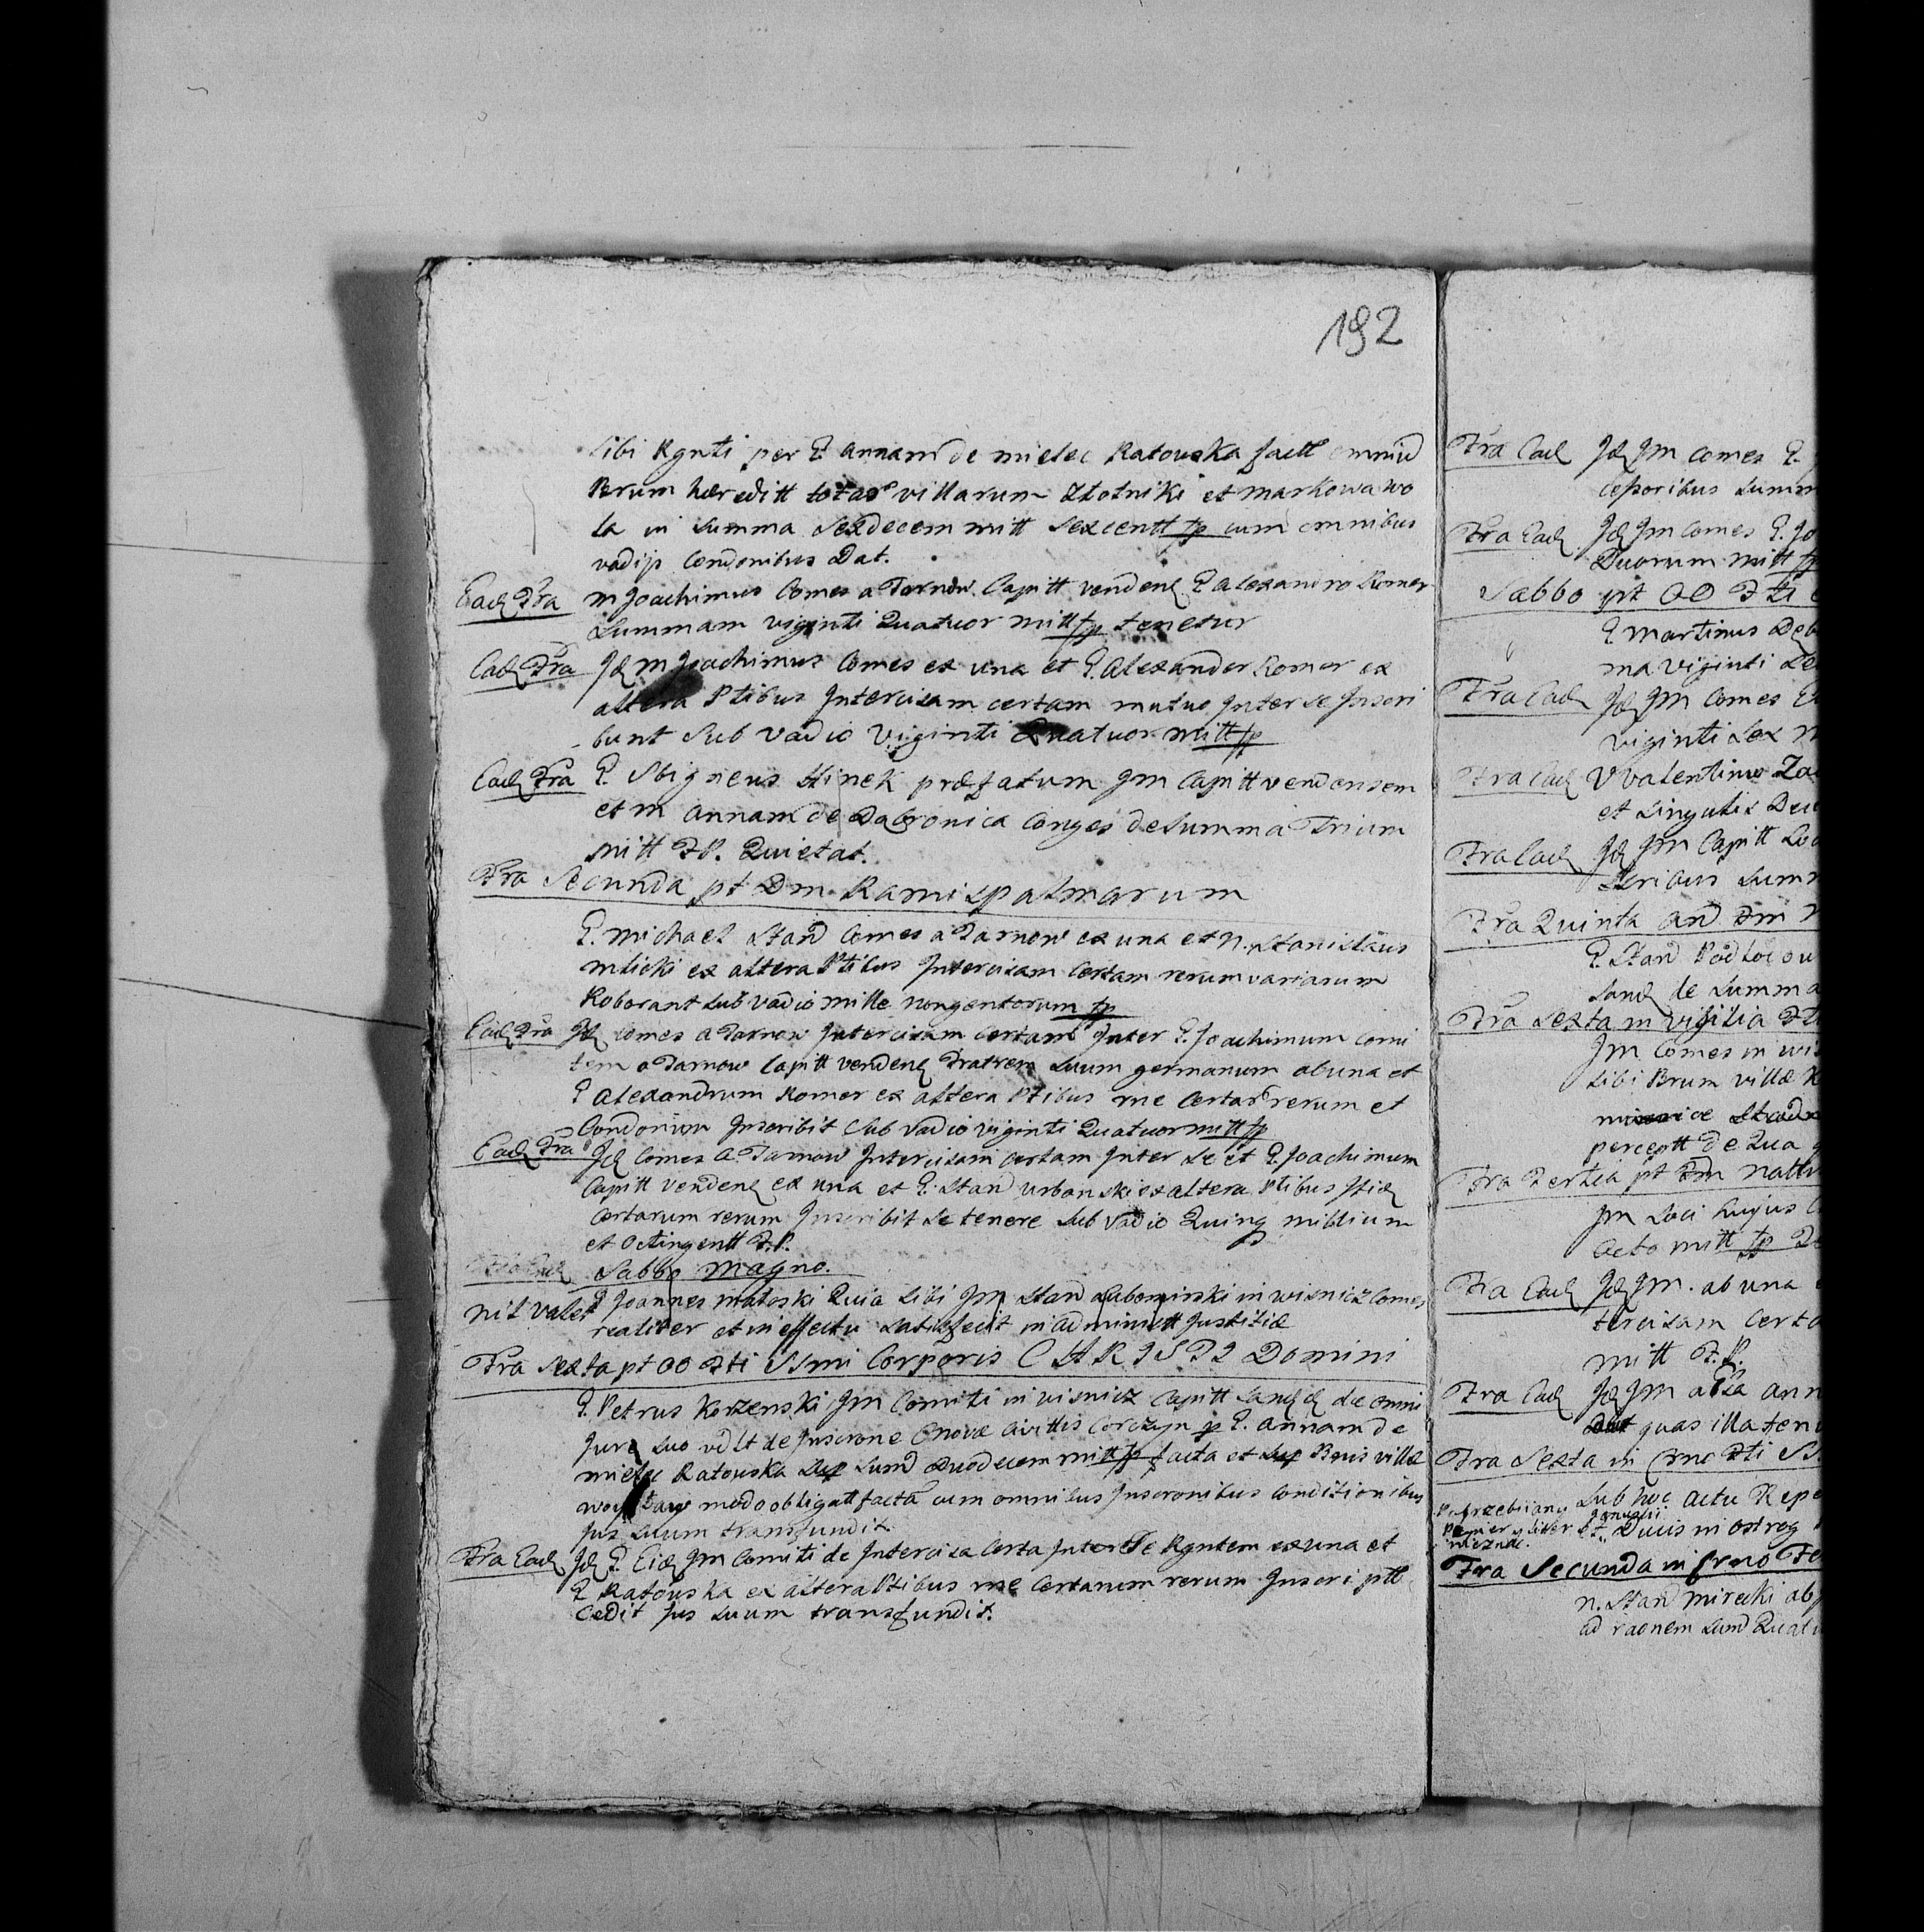 192
sibi Rgnti per G. Annam de mielec Ratouska factt omniu
Brum hæreditt totar villarum Złotniki et markowa wo
la in summa sexdecem mill sexcentt fp cum omnibus
vadijs Condonibus Dat.
Ead Fra m Joachimus Comes a Tarnow Capitt venden G Alexandro Romer
summam viginti Quatuor mill fp tenetur
Ead Fra Id m Joachimus Comes ex una et G. Alexander Romer ex
altera Ptibus Intercisam certam mutuo Inter se Inscri
bunt sub vadio viginti Quatuor mill fp
Ead Fra G. Sbigneus Hinek præfatum Jm Capitt vendensem
et m Annam de Dabronica Conges de summa Trium
mill F.P. Quietat.
Fra Secunda pt Dm Ramispalmarum
G. Michael Stan Comes a Tarnow ex una et N. Stanislaus
mlicki ex altera Ptibus Intercisam Certam rerum variarum
Roborant sub vadio mille nongentorum fp
Ead Fra Id Comes a Tarnow Intercisam Certam Inter G. Joachimum Comi
tem a Tarnow Capitt venden Fratrem suum germanum ab una et
G Alexandrum Romer ex altera Ptibus rne Certar rerum et
Condonum Inscribit sub vadio viginti Quatuor mill fp
Ead Fra Id Comes a Tarnow Intercisam certam Inter se et G. Joachimum
Capitt venden ex una et G. Stan Urbanski ex altera Ptibus
Certarum rerum Inscribit se tenere sub vadio Quinq millium
et Octingentt F.P.
Sabbo magno.
nil valet G Joannes matoski Quia sibi Jm Stan Lubomirski in wisnicz Comes
realiter et in effectu satisfecit in administt Justitiæ
Fra Sexta pt OO Fti SSmi Corporis CHRISTI Domini
G. Petrus Korzenski Jm Comiti in wisnicz Capitt Sand de omni
Jure suo de Inscrone Novæ Civittis Corczyn p G. Annam de
mielec Ratouska sup sum duodecem mill fp facta et sup Bnis villæ
modo obligatt facta cum omnibus Inscronibus conditionibus
Jus suum transfundit.
Fra Ead Id G. Eid Jm Comiti de Intercisa Certa Inter Se Rgntem ex una et
G Ratouska ex altera Ptibus rne Certarum rerum Inscriptt
Cedit Jus suum transfundit.
Fra Ead Id Jm Comes G.
cessoribus summ
Fra Ead Id Jm Comes G. Jo
Duorum mill fp
Sabbo pt OO Fti
G. Martinus Deb
ma viginti se
Fra Ead Id Jm Comes
viginti sex m
Fra Ead V Valentinus Za
et singulis
Fra Ead Id Jm Capitt
summ
Fra Quinta an Fm
G. Stan
Sand de summa
Fra Sexta in vigilia
Jm Comes in wis
sibi Brum villæ
perceptt de Qua
Fra Tertia pt Fm nattv
Jm Loci hujus
Octo mill fp
Fra Ead Id Jm. ab una
tercisam certa
mill F.P.
Fra Ead Id Jm
quas illa ten
Fra Sexta in Crno Fti SS.
sub hoc actu Repe
Ducis in ostrog
Fra Secunda in Crno Fe
N. Stan mirecki ab
ad raonem sum Quatu